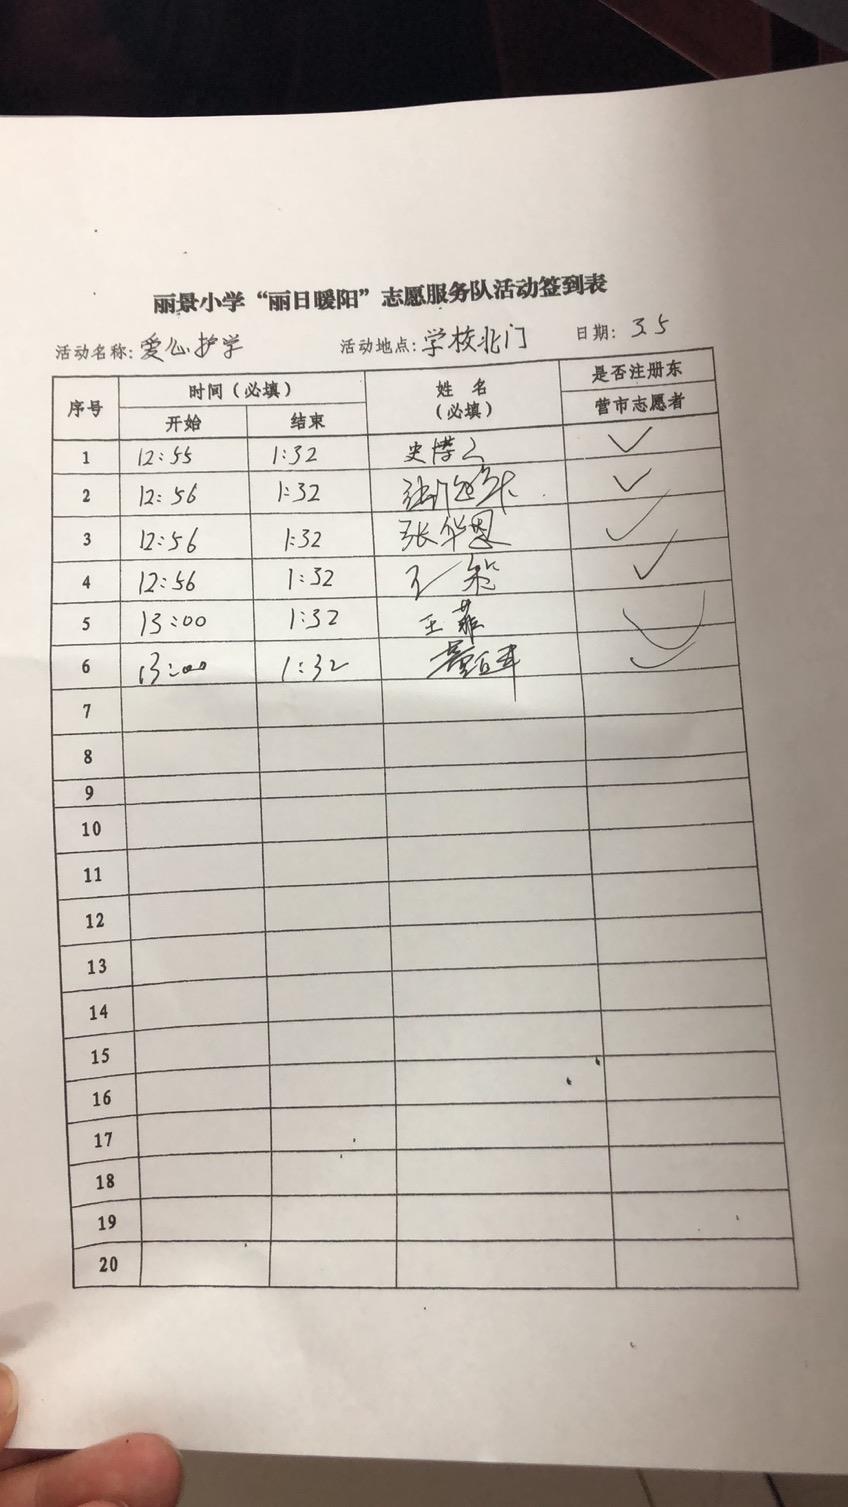 丽景小学“丽日暖阳”志愿服务队活动签到表
活动名称: 爱心护学 活动地点: 学校北门 日期: 3.5
序号 时间（必填） 姓名（必填） 是否注册东营市志愿者
开始 结束
1 12:55 1:32 史博文 ✓
2 12:56 1:32 ✓
3 12:56 1:32 张华恩 ✓
4 12:56 1:32 王 ✓
5 13:00 1:32 王菲 ✓
6 13:00 1:32 ✓
7
8
9
10
11
12
13
14
15
16
17
18
19
20